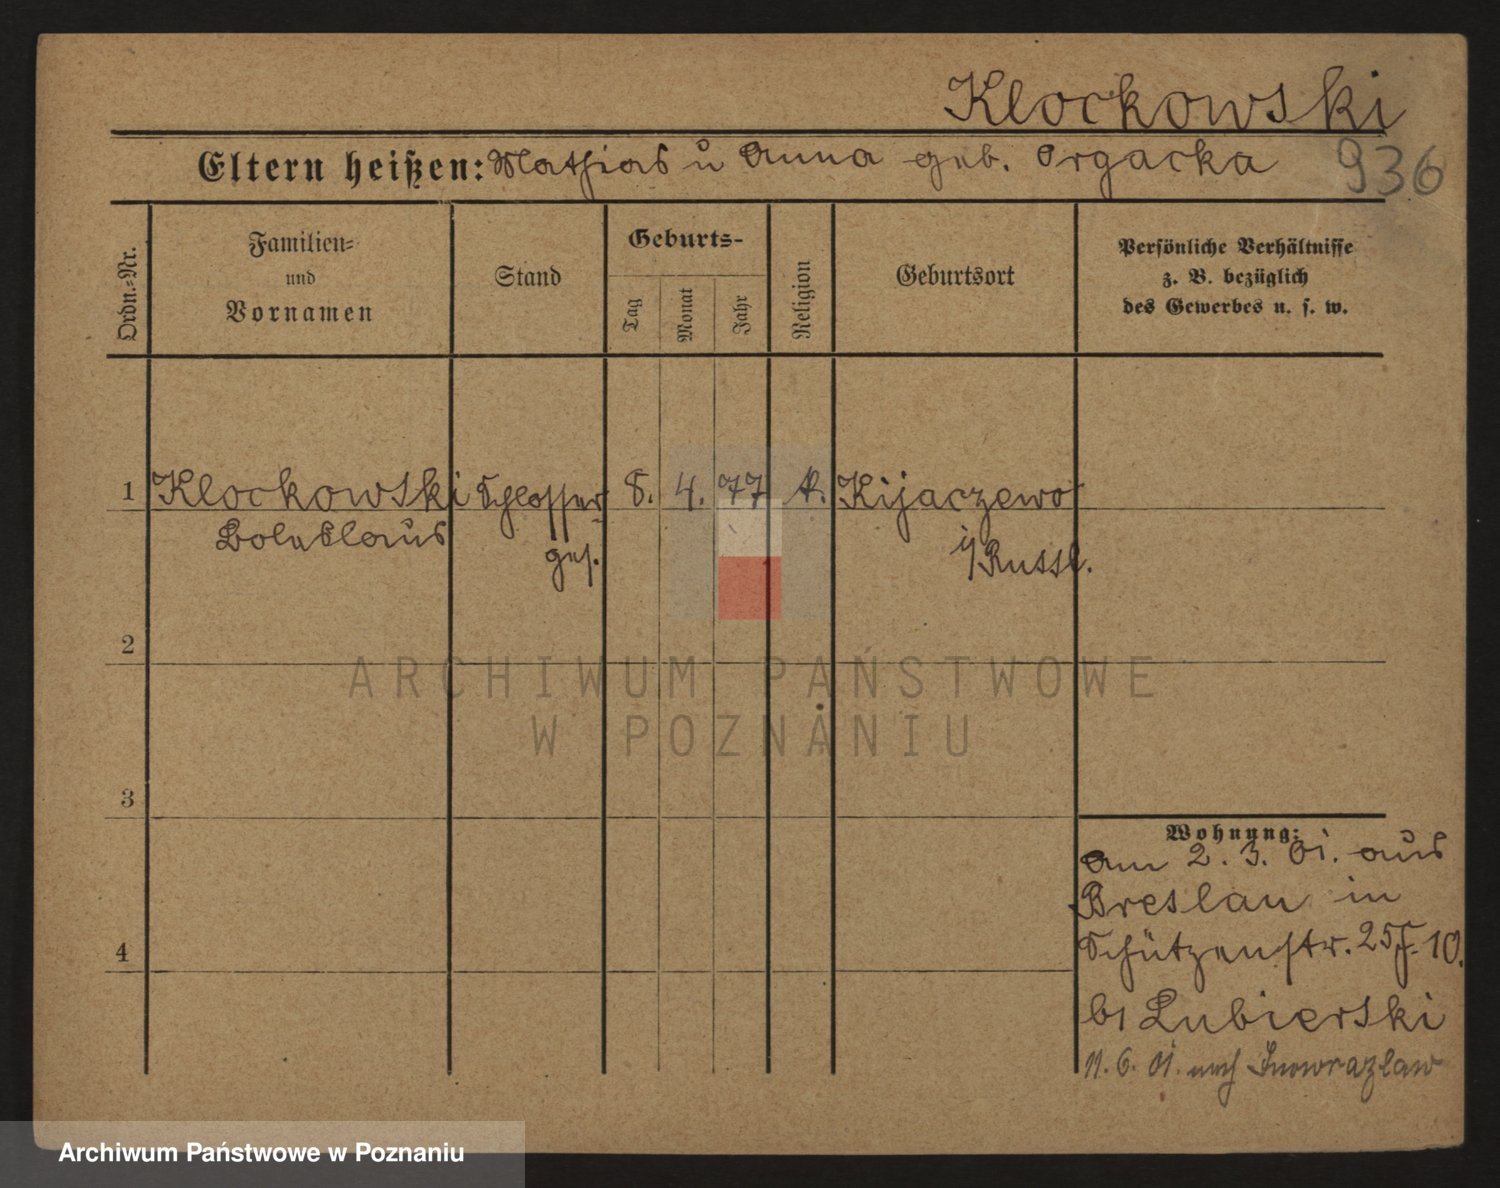 Klockowski
Eltern heißen: Mathias u Anna geb. Orgacka
936
Ordn.-Nr.
Familien-
und
Vornamen
Stand
Geburts-
Tag
Monat
Jahr
Religion
Geburtsort
Persönliche Verhältnisse
z. B. bezüglich
des Gewerbes u. s. w.
1 Klockowski Schlosser 8. 4. 77 k. Kijaczewo
Boleslaus ges. i/Russl.
2
3
4
Wohnung:
am 2. 3. 01. aus
Breslau in
Schützenstr. 25 10.
bi Lubierski
11. 6. 01. nach Inowrazlaw
ARCHIWUM PAŃSTWOWE
W POZNANIU
Archiwum Państwowe w Poznaniu